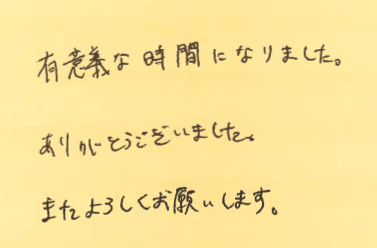 有意義な時間になりました。
ありがとうございました。
またよろしくお願いします。